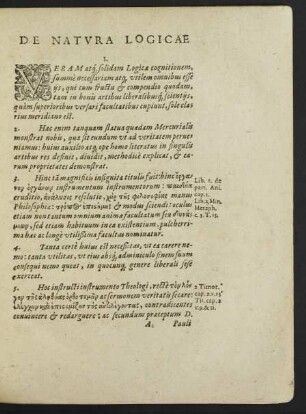 DE NATVRA LOGICAE
I.
VERAM atq́; solidam Logicæ cognitionem,
summè necessariam atq́; vtilem omnibus esse
ijs, qui cum fructu & compendio quodam,
tam in bonis artibus liberalibusq́; scientijs,
quàm superioribus versari facultatibus cupiunt, sole clarius meridiano est.
2. Hæc enim tanquam statua quædam Mercurialis
monstrat nobis, qua sit eundum vt ad veritatem perueniamus: huius auxilio atq́; ope homo literatus in singulis
artibus res definit, diuidit, methodicè explicat, & earum proprietates demonstrat.
3. Hinc tā magnificis insignita titulis fuit: hinc
ὄργανον ὀργάνων instrumentum instrumentorum:
eruditio, resolutio, τῆς φιλοσοφίας manus
Philosophiæ: & modus sciendi: oculus
etiam non tantum omnium animæ facultatum seu
sed etiam habituum in ea existentium, pulcherrimus ac longè vtilissima facultas nominatur.
Lib. 3. de
part. Ani.
cap. 1.
Lib. 2. Min.
Metaph.
c. 3. T. 15.
4. Tanta certè huius est necessitas, vt ea carere nemo: tanta vtilitas, vt eius absq́; adminiculo finem suum
consequi nemo queat, in quocunq́; genere liberali sese
exerceat.
5. Hoc instructi instrumento Theologi, rectè τὸν λόγον τῆς ἀληθείας ὀρθοτομεῖν at sermonem veritatis secare:
contradicentes
conuincere & redarguere: ac secundum præceptum D.
2 Timot.
cap. 2. v. 15
Tit. cap. 1.
v. 9. & 11.
A. Pauli